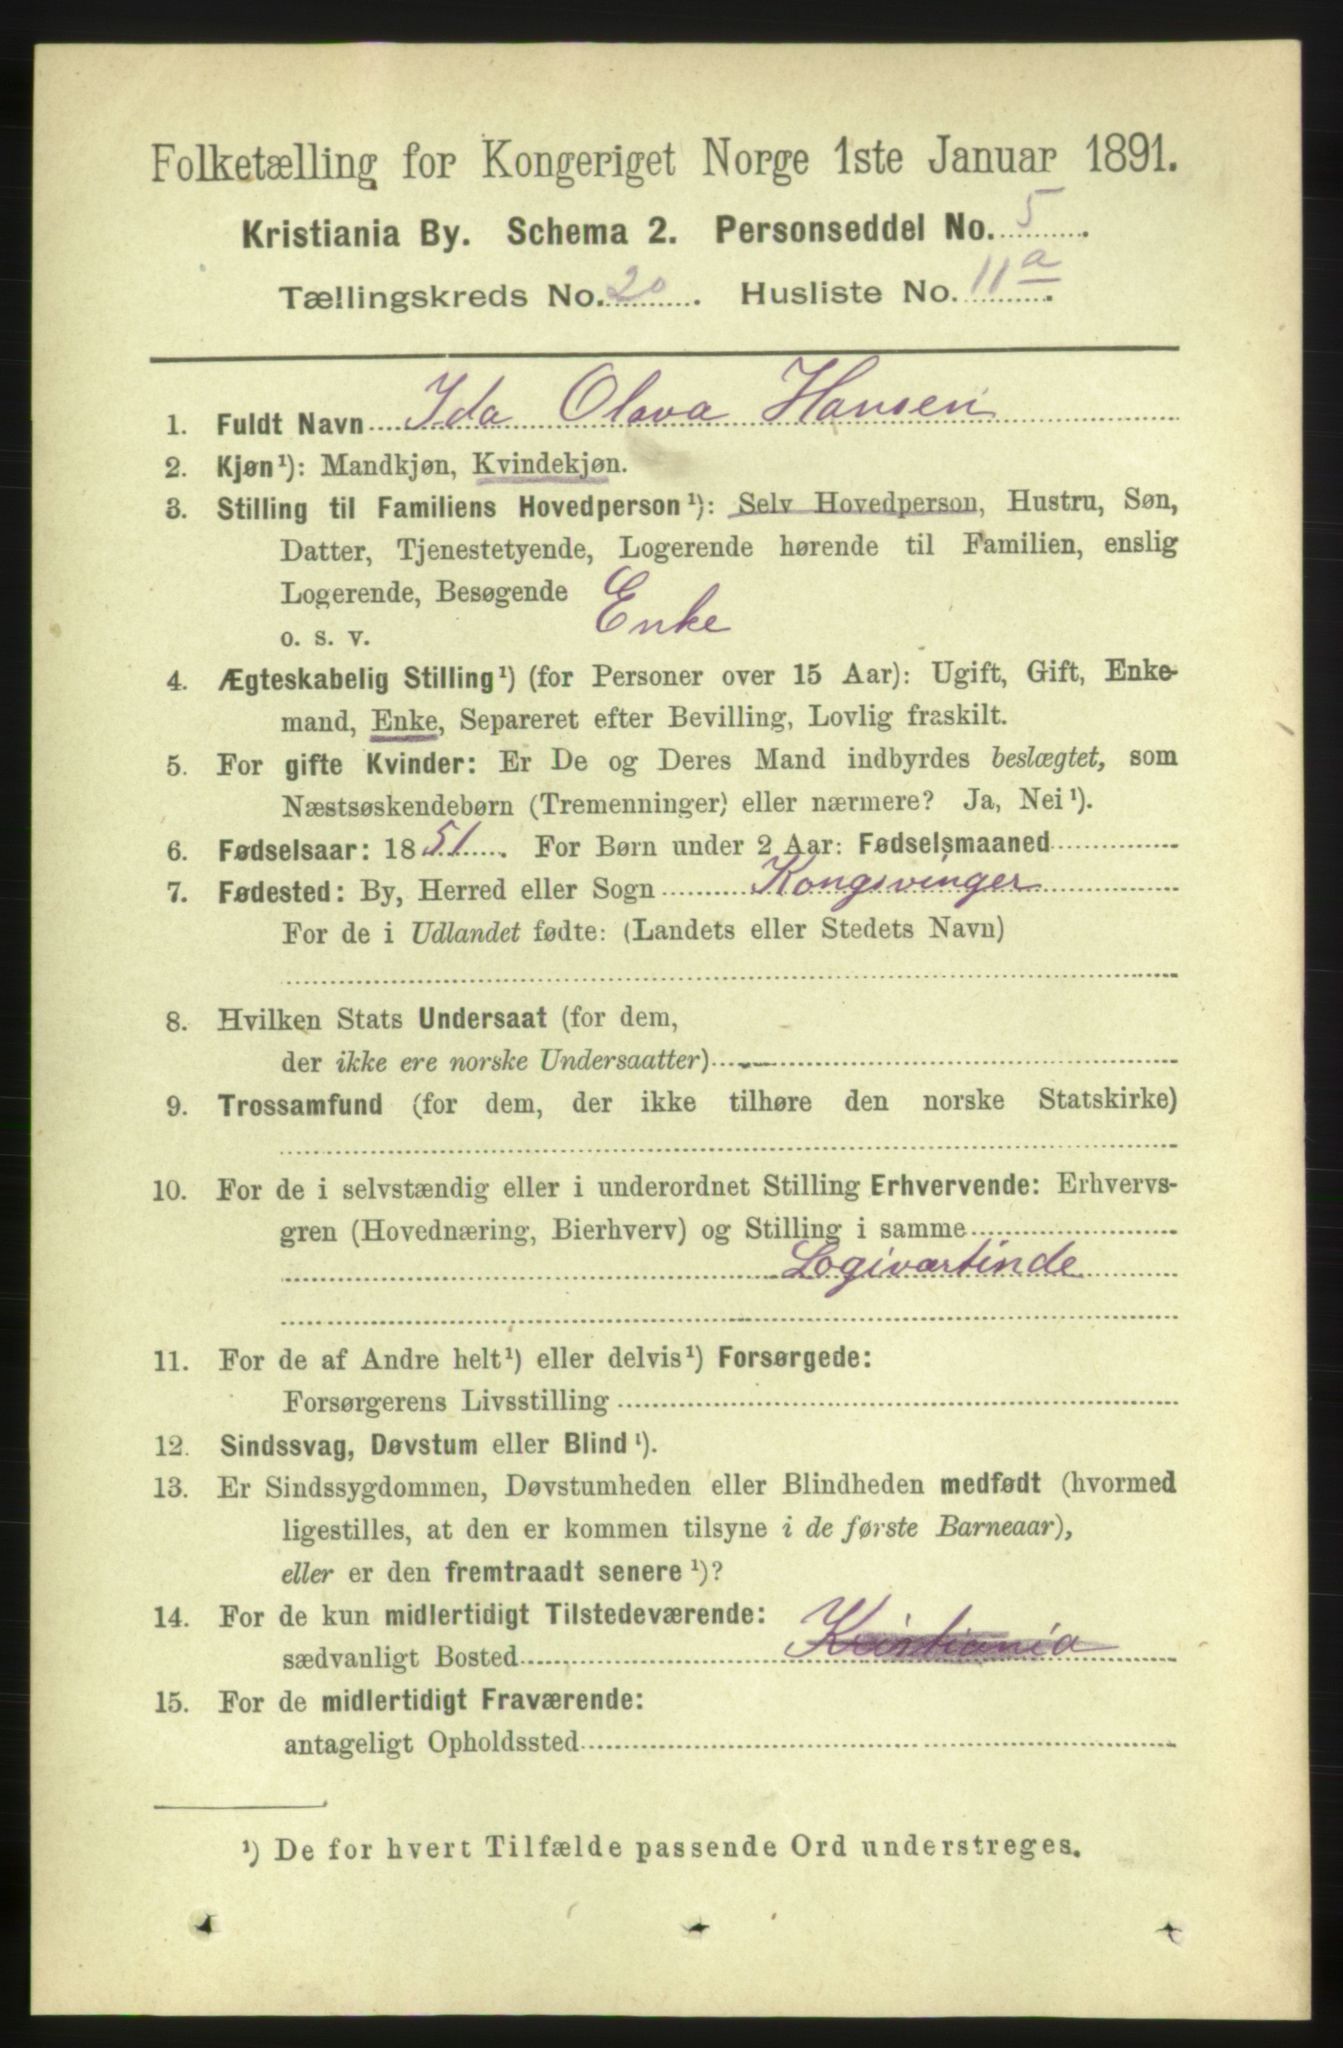 Folketælling for Kongeriget Norge 1ste Januar 1891.
Kristiania By. Schema 2. Personseddel No. 5.
Tællingskreds No. 20. Husliste No. 11a.
1. Fuldt Navn Ida Olava Hansen
2. Kjøn¹): Mandkjøn, Kvindekjøn.
3. Stilling til Familiens Hovedperson¹): Selv Hovedperson, Hustru, Søn,
Datter, Tjenestetyende, Logerende hørende til Familien, enslig
Logerende, Besøgende
o. s. v. Enke
4. Ægteskabelig Stilling¹) (for Personer over 15 Aar): Ugift, Gift, Enke-
mand, Enke, Separeret efter Bevilling, Lovlig fraskilt.
5. For gifte Kvinder: Er De og Deres Mand indbyrdes beslægtet, som
Næstsøskendebørn (Tremenninger) eller nærmere? Ja, Nei¹).
6. Fødselsaar: 1851. For Børn under 2 Aar: Fødselsmaaned
7. Fødested: By, Herred eller Sogn Kongsvinger
For de i Udlandet fødte: (Landets eller Stedets Navn)
8. Hvilken Stats Undersaat (for dem,
der ikke ere norske Undersaatter)
9. Trossamfund (for dem, der ikke tilhøre den norske Statskirke)
10. For de i selvstændig eller i underordnet Stilling Erhvervende: Erhvervs-
gren (Hovednæring, Bierhverv) og Stilling i samme
Logiværtinde
11. For de af Andre helt¹) eller delvis¹) Forsørgede:
Forsørgerens Livsstilling
12. Sindssvag, Døvstum eller Blind¹).
13. Er Sindssygdommen, Døvstumheden eller Blindheden medfødt (hvormed
ligestilles, at den er kommen tilsyne i de første Barneaar),
eller er den fremtraadt senere¹)?
14. For de kun midlertidigt Tilstedeværende:
sædvanligt Bosted Kristiania
15. For de midlertidigt Fraværende:
antageligt Opholdssted
¹) De for hvert Tilfælde passende Ord understreges.